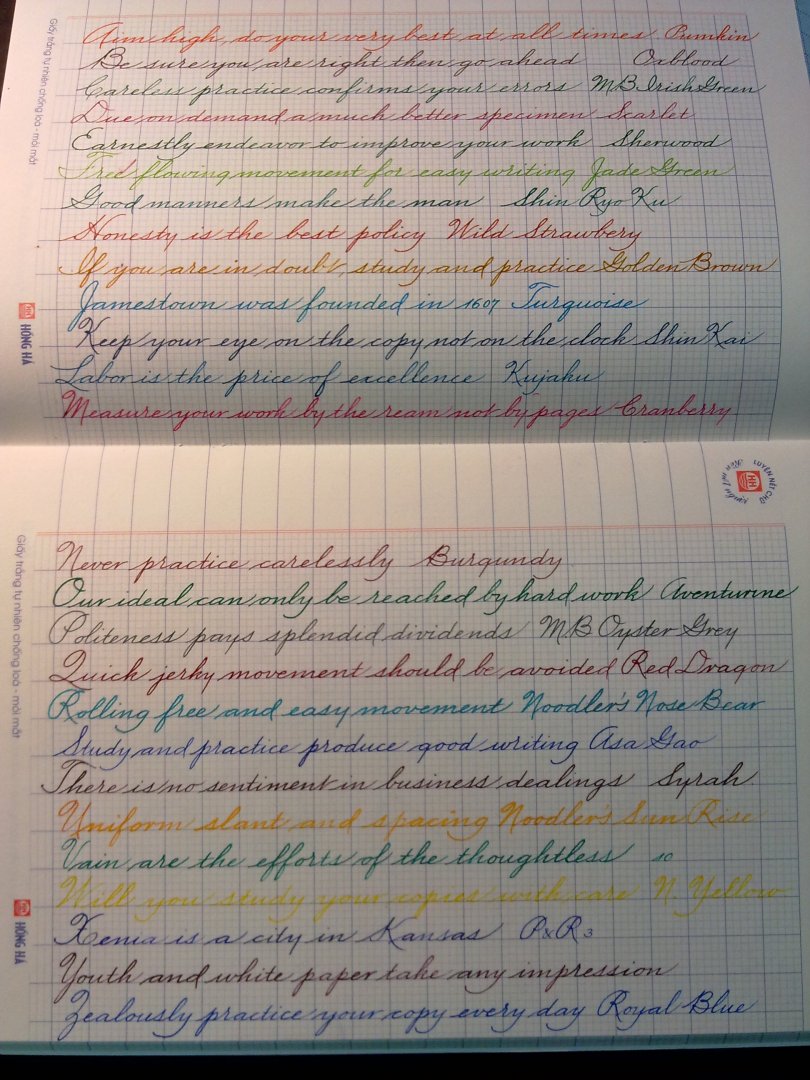 Aim high, do your very best at all times Pumkin
Be sure you are right then go ahead Oxblood
Careless practice confirms your errors MB Irish Green
Due on demand a much better specimen Scarlet
Earnestly endeavor to improve your work Sherwood
Free flowing movement for easy writing Jade Green
Good manners make the man Shin Ryo Ku
Honesty is the best policy Wild Strawbery
If you are in doubt, study and practice Golden Brown
Jamestown was founded in 1607 Turquoise
Keep your eye on the copy not on the clock Shin Kai
Labor is the price of excellence Kujaku
Measure your work by the ream not by pages Cranberry
Giấy trắng tự nhiên chống loá - mỏi mắt
HH HỒNG HÀ
LUYỆN NÉT CHỮ
Rèn nết người
HH
Never practice carelessly Burgundy
Our ideal can only be reached by hard work Aventurine
Politeness pays splendid dividends MB Oyster Grey
Quick jerky movement should be avoided Red Dragon
Rolling free and easy movement Noodler's Nose Bear
Study and practice produce good writing Asa Gao
There is no sentiment in business dealings Syrah
Uniform slant and spacing Noodler's Sun Rise
Vain are the efforts of the thoughtless
Will you study your copies with care N. Yellow
Xenia is a city in Kansas PxR3
Youth and white paper take any impression
Zealously practice your copy every day Royal Blue
Giấy trắng tự nhiên chống loá - mỏi mắt
HH HỒNG HÀ